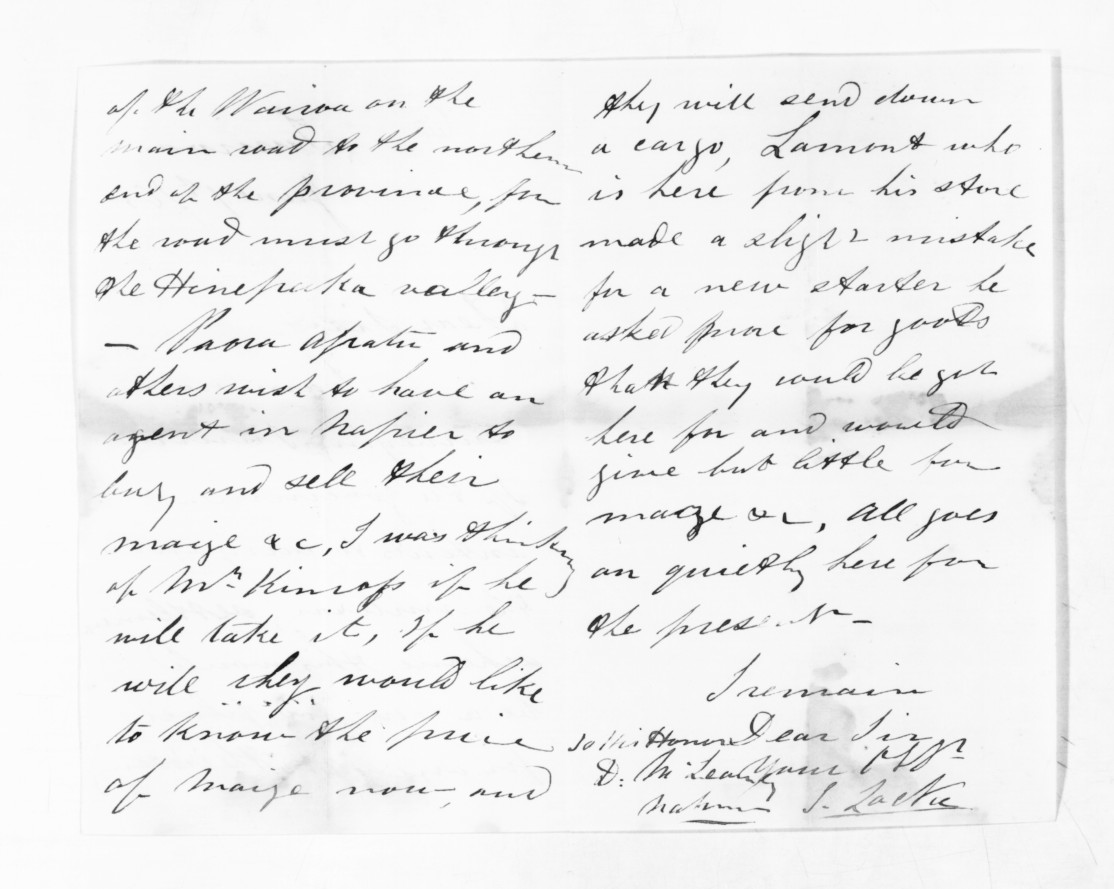 of the Wairoa on the
main road to the northern
end of the province, for
the road must go through
the Hinepaka valley -
- Paora Apatu and
others wish to have an
agent in Napier to
buy and sell their
maize &c, I was thinking
of Mr Kinross if he
will take it, If he
will they would like
to know the price
of maize now, and
they will send down
a cargo, Lamont who
is here from his store
made a slight mistake
for a new starter he
asked more for goods
than they could be got
here for and would
give but little for
maize &c, All goes
on quietly here for
the present -
I remain
Dear Sir
Your
To His Honor
D. McLean
S. Locke